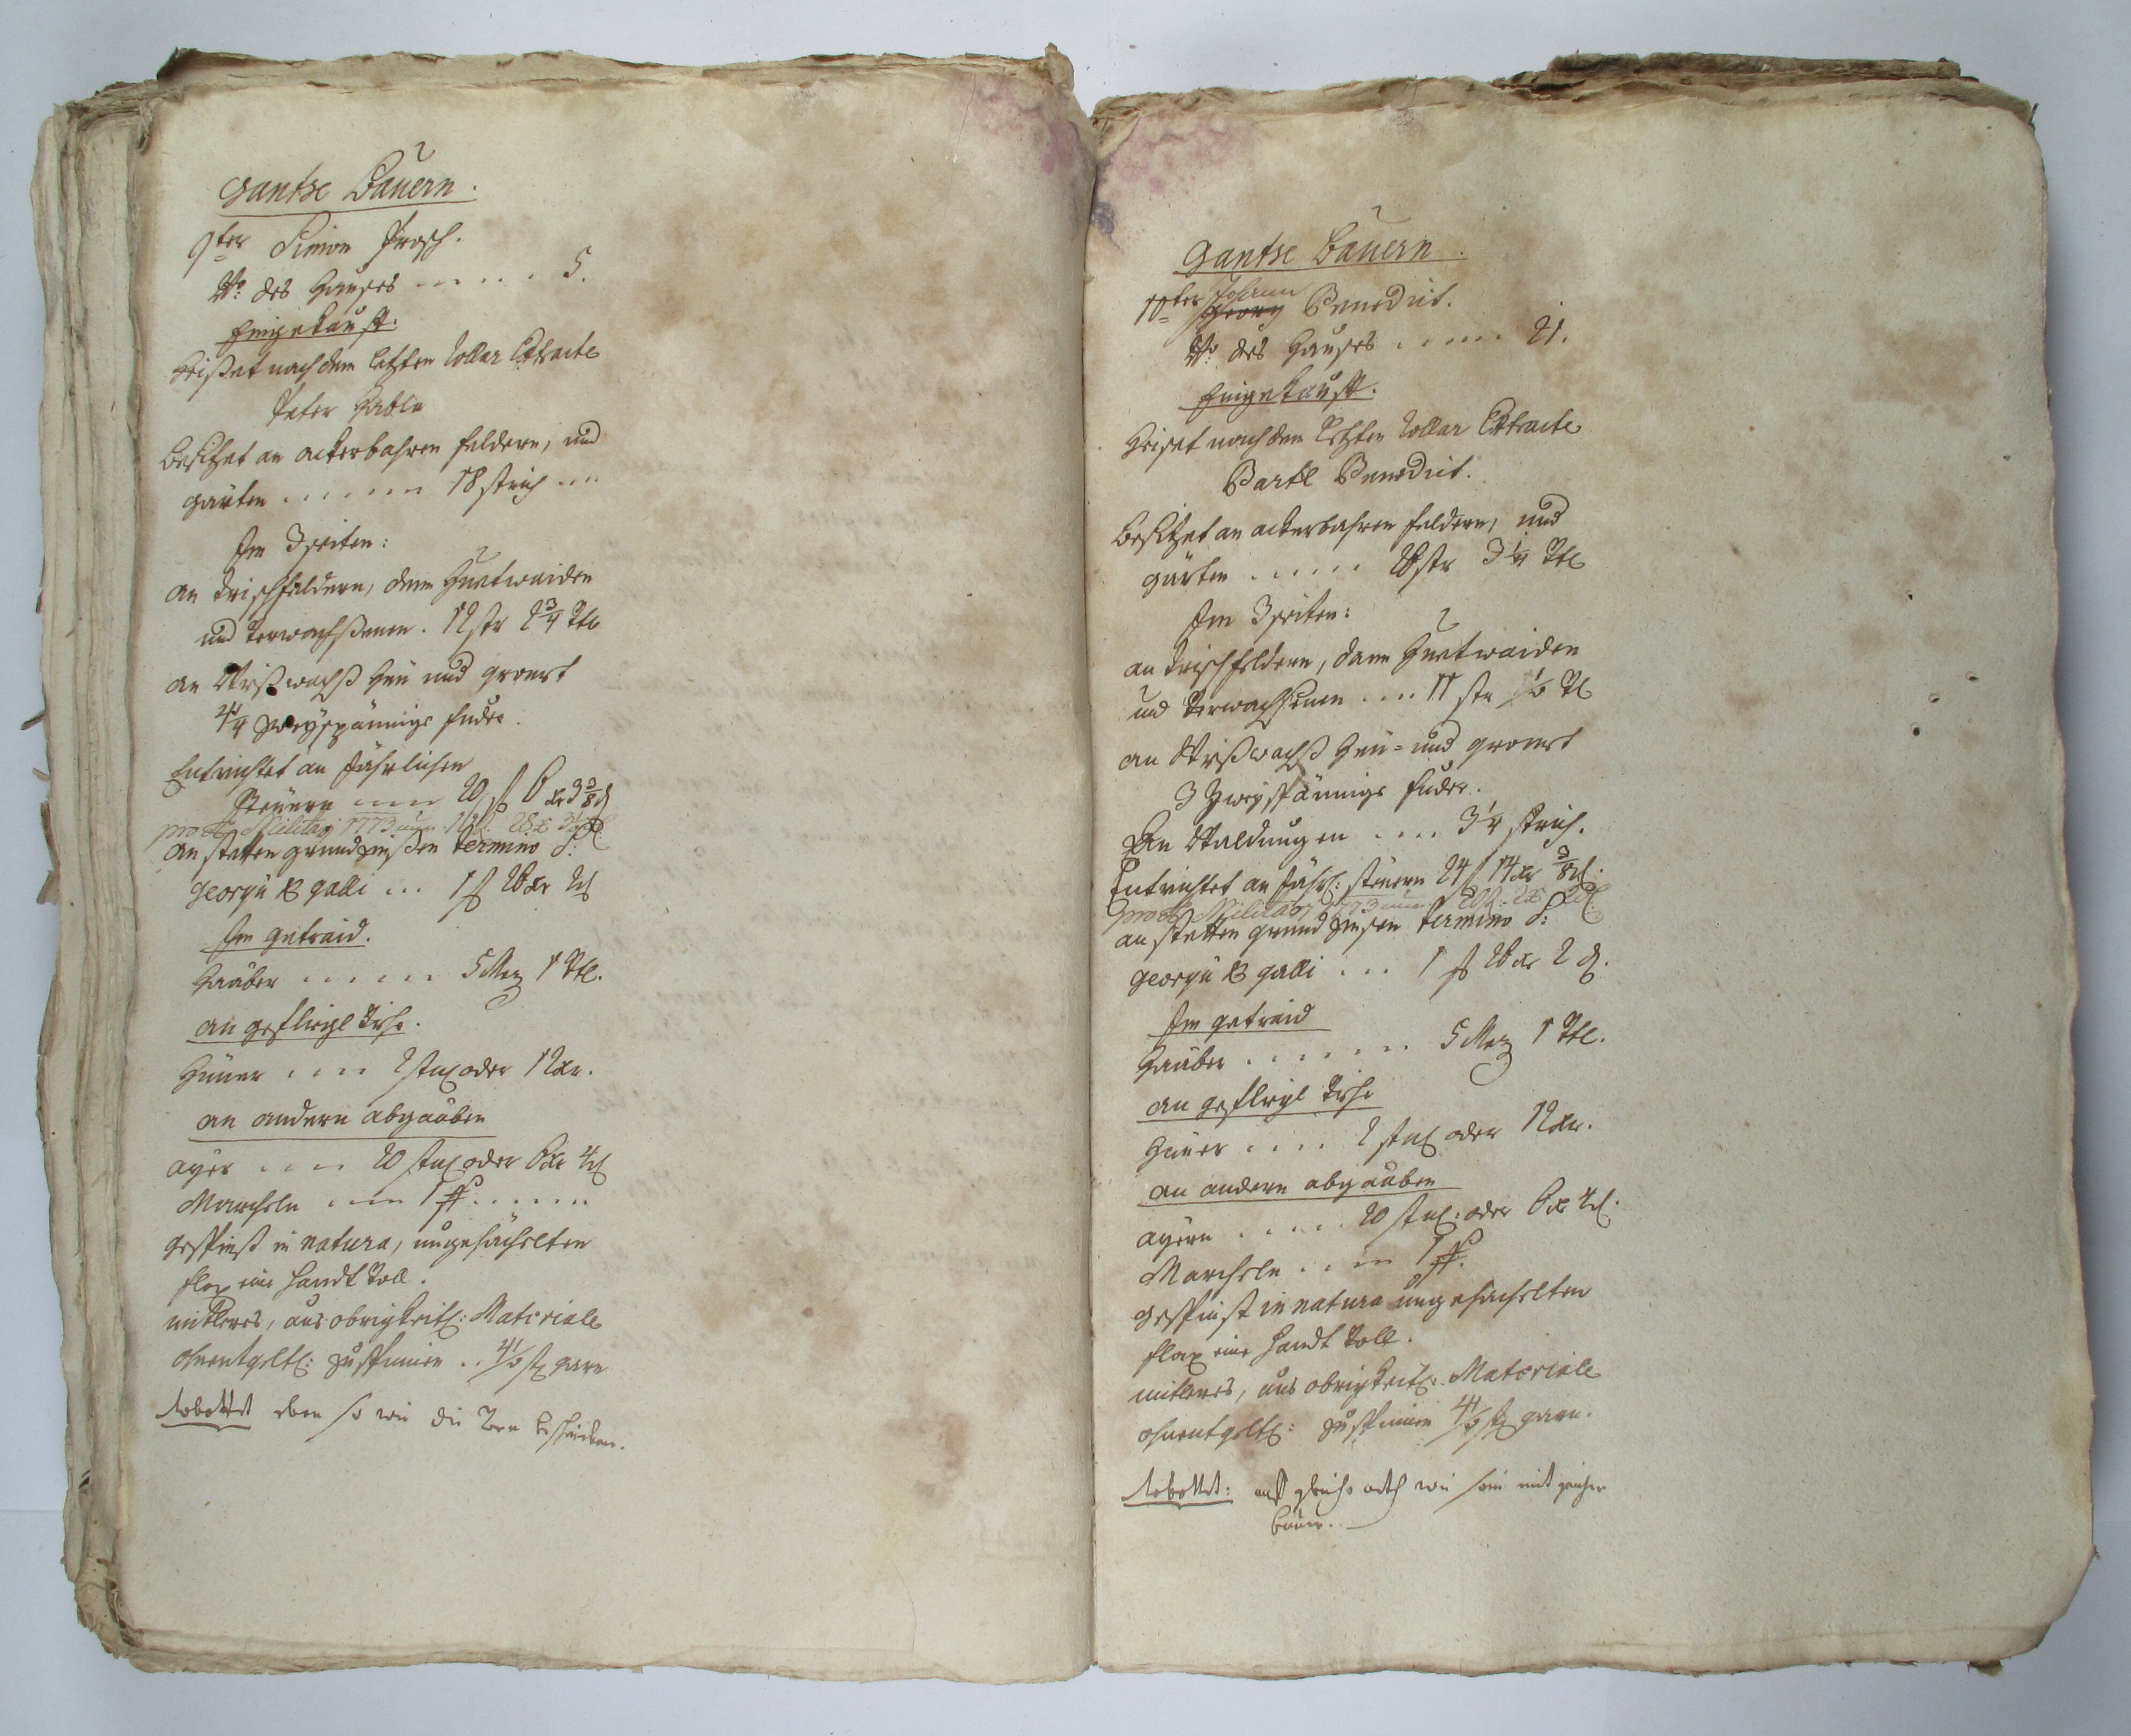 Gantze Bauern.
9ter Simon Frosch.
No: des Hauses . . . . . 5.
Eingekauft.
Heißet nach dem letzten Rollar Extracte
Peter Hable
Besitzet an ackerbahren feldern, und
garten . . . . . . 18 strich . . .
Im 3 seiten:
an drischfeldern, denn Huetwaiden
und verwachßenen . 12 str 2 3/4 Vtl
an Wießwachß Heu und gromet
4/4 zweyspännige fuder.
Entrichtet an Jährlichen
Steüern . . . . 20 f 6 xr 3 3/8 d
pro Militari 1773
an stetten grundzinßen termino S:
georgii & galli . . . 1 f 26 xr 2 d
Im getraid.
Haaber . . . . . . 5 Mez 1 Vtl.
an geflügl Vihe.
Hüner . . . . 2 stuk oder 12 xr.
an andern abgaaben
ayer . . . . 20 stuk oder 6 xr 4 d
Marcheln . . . . 1 ff . . . . . .
gespinst in natura, ungehächelten
flax eine handt voll.
mitleres, aus obrigkeitl: Materiale
ohnentgeltl: zu spinnen . . 4 1/2 stk garn
Robottet eben so wie die vorn beschrieben.
Gantze Bauern.
Johann
10ter Georg Benedict.
No: des Hauses . . . . . 21.
Eingekauft.
Heiset nach dem letzten Rollar Extracte
Bartl Benedict.
Besitzet an ackerbahren feldern, und
gärten . . . . . 26 str 3 1/4 Vtl
Im 3 seiten:
an drischfeldern, dann Huetwaiden
und verwachsenen . . . . 11 str 1/2 Vtl
an Wießwachß Heu- und gromet
3 Zweyspännige fuder.
An Waldungen . . . . 3 1/4 strich.
Entrichtet an Jährl: steüern 24 f 14 xr 3/8 d.
pro Militari 1773
an stetten grundzinsen termino S:
georgii & galli . . . 1 f 26 xr 2 d.
Im getraid
Haaber . . . . . . . 5 Mez 1 Vtl.
an geflügl Vihe
Hüner . . . . 2 stuk oder 12 xr.
an andern abgaaben
ayern . . . . . 20 stuk: oder 6 xr 4 d.
Marcheln . . . . 1 ff.
gespinst in natura ungehächelten
flax eine handt voll.
mitleres, aus obrigkeitl: Materiale
ohnentgeltl: zu spinnen 4 1/2 stk garn.
Robottet: auf gleiche arth wie sein mit gantzer
bauer.